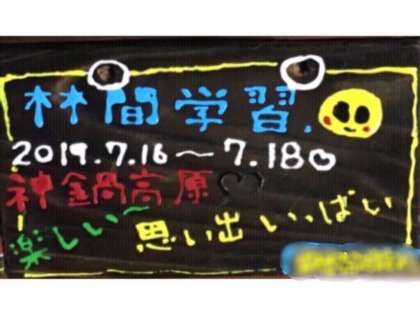 林間学習.
2019.7.16～7.18
神鍋高原
楽しい～思い出いっぱい